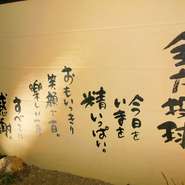 全力投球
今日を
いまを
精いっぱい。
おもいっきり
笑顔で一日。
楽しい一日
すべてに
感謝